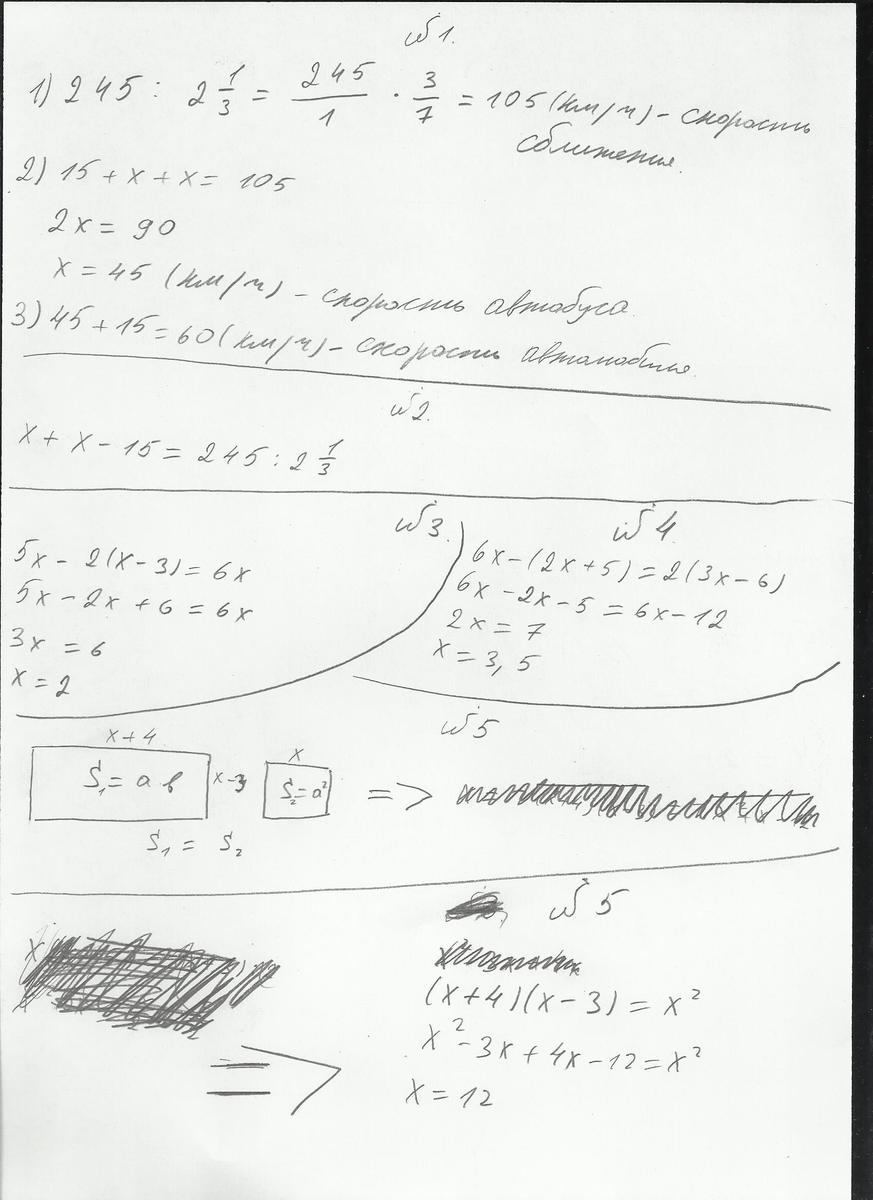 №1.
1) 245 : 2 1/3 = 245/1 · 3/7 = 105 (км/ч) – скорость
сближения.
2) 15 + x + x = 105
2x = 90
x = 45 (км/ч) – скорость автобуса.
3) 45 + 15 = 60 (км/ч) – скорость автомобиля.
№2.
x + x – 15 = 245 : 2 1/3
№3.
5x – 2(x – 3) = 6x
5x – 2x + 6 = 6x
3x = 6
x = 2
№4
6x – (2x + 5) = 2(3x – 6)
6x – 2x – 5 = 6x – 12
2x = 7
x = 3,5
№5
x + 4
S₁ = a b
x – 3
x
S₂ = a²
=>
S₁ = S₂
№5
(x + 4)(x – 3) = x²
x² – 3x + 4x – 12 = x²
=>
x = 12